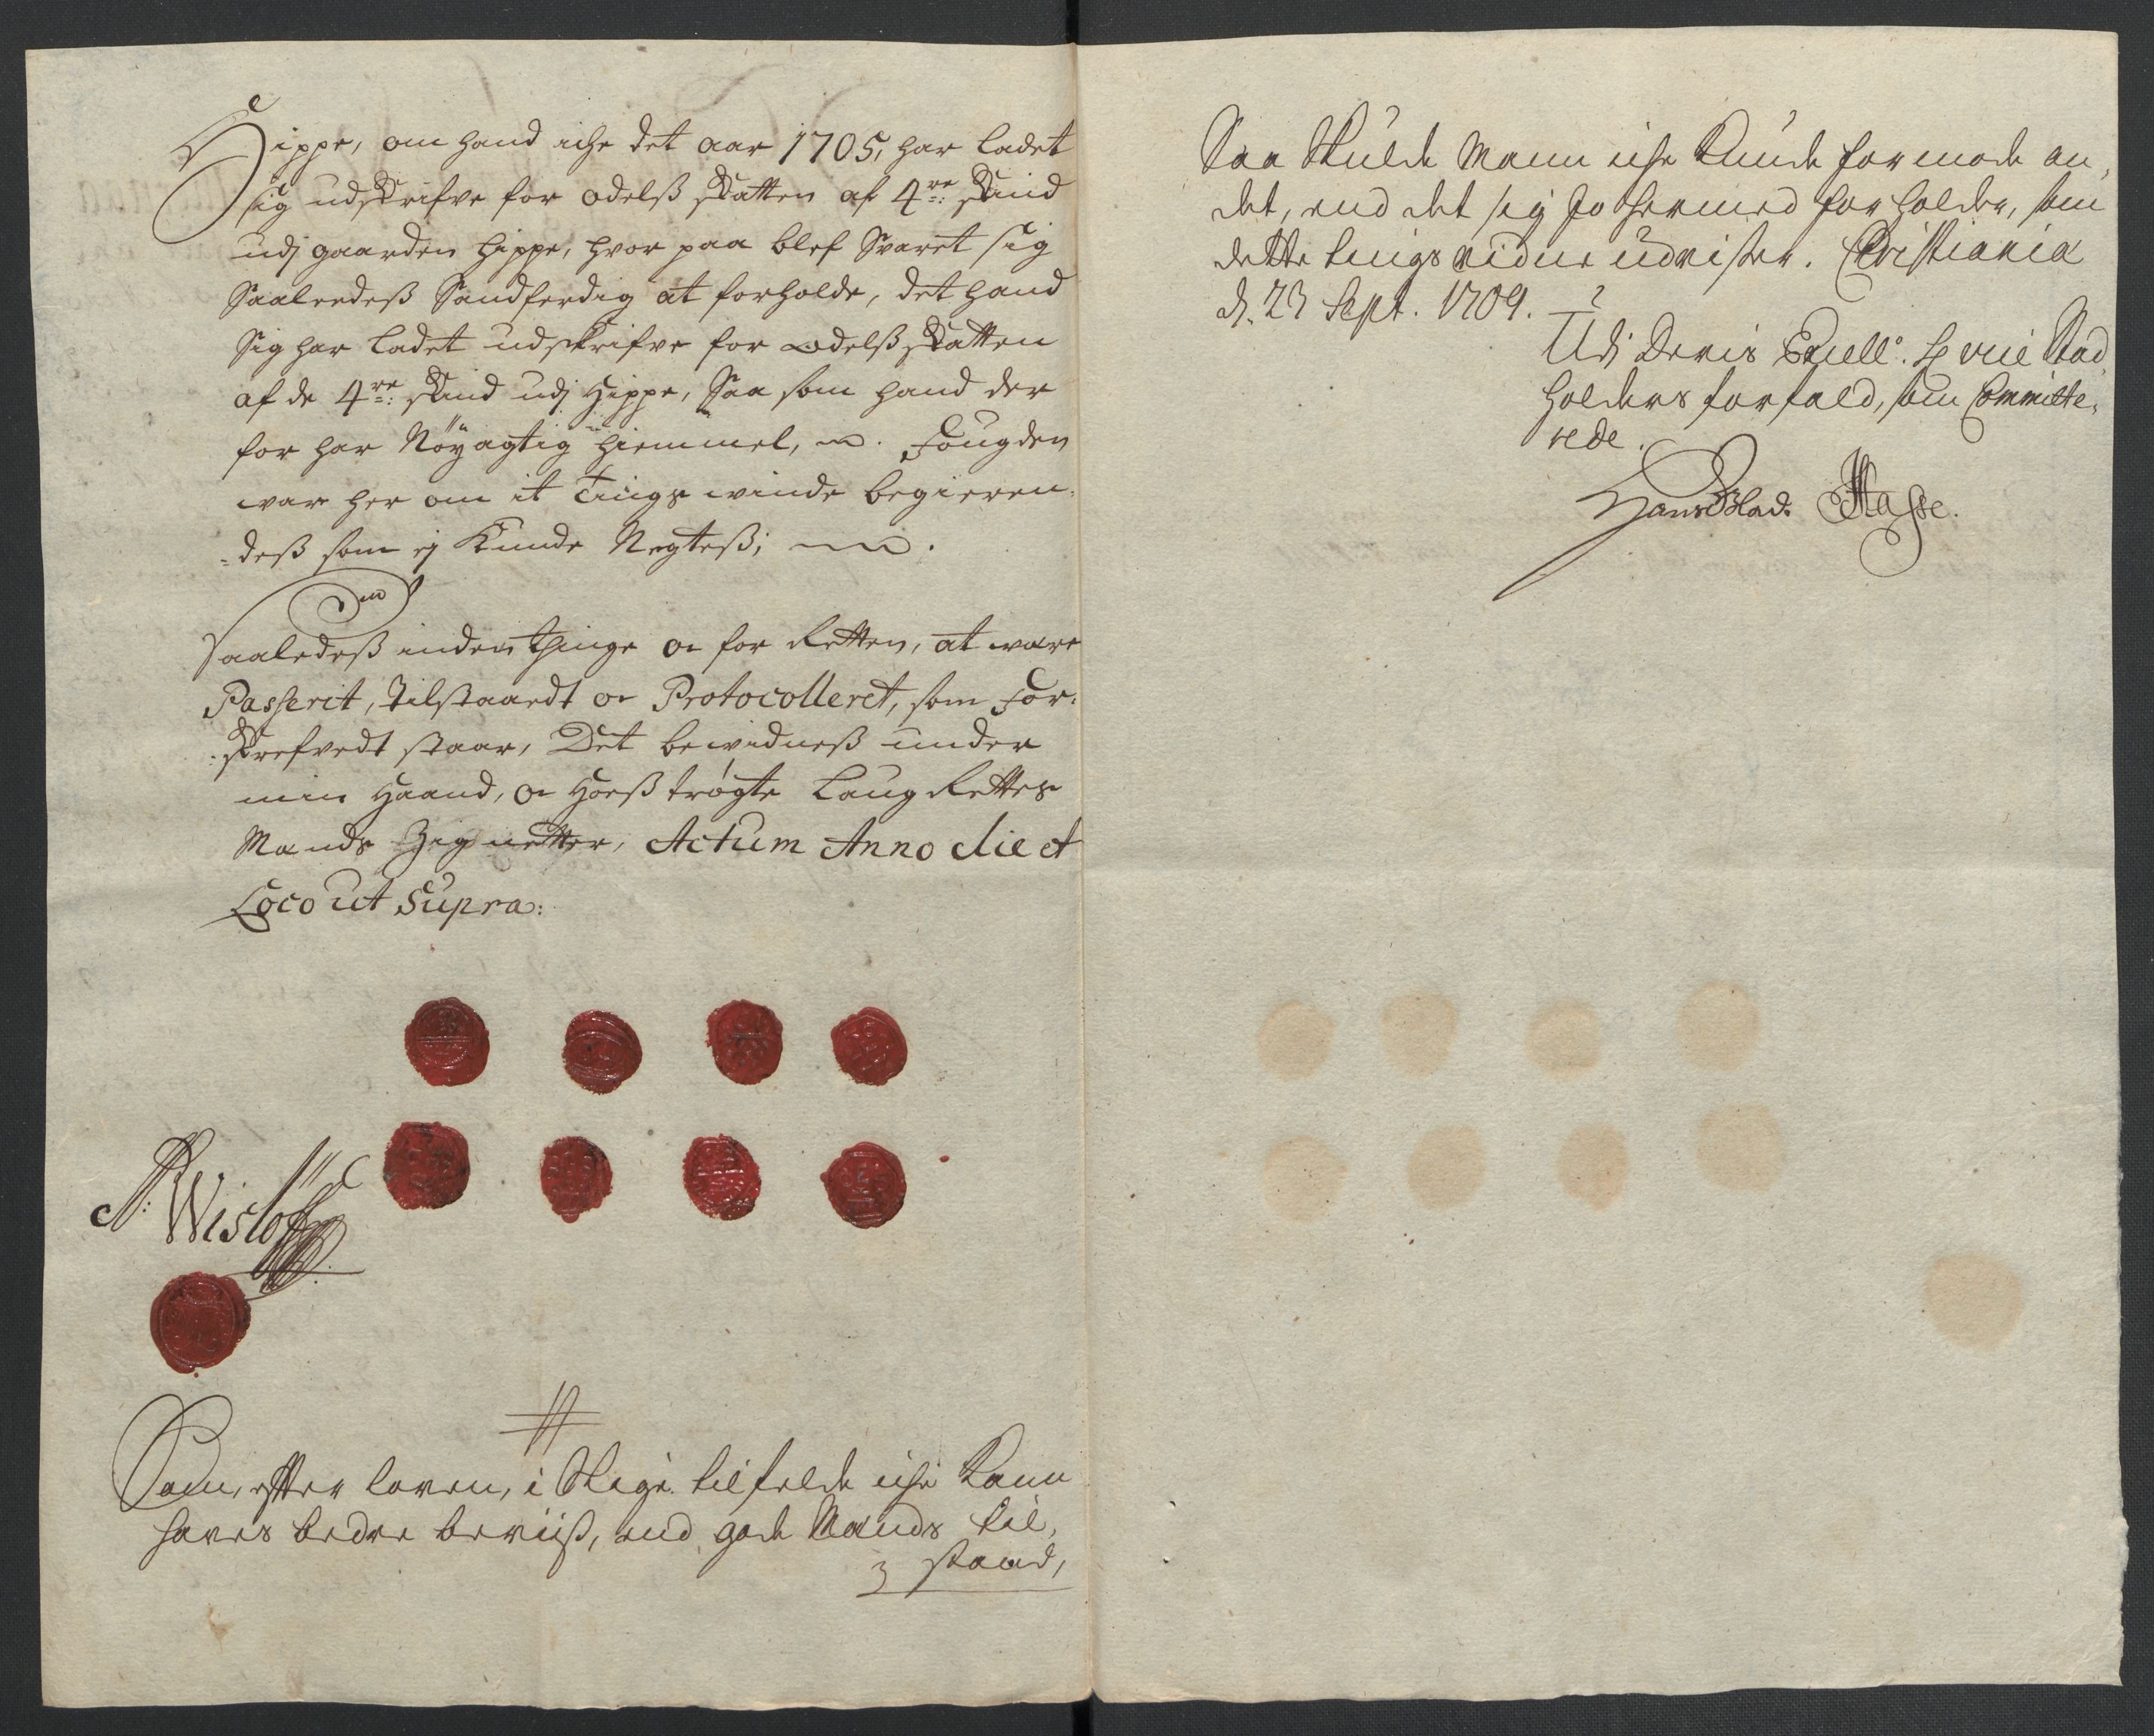 Hippe, om hand iche det aar 1705, har ladet
sig udskrifve for odelss skatten af 4re: skind
udj gaarden hippe, hvor paa blef Svaret sig
Saaleedess Sandferdig at forholde, det hand
Sig har ladet udskrifve for odelss skatten
af de 4re: skind udj Hippe, Saa som hand der
for har Nöyagtig hiemmel, Fougden
war her om it Tings winde begieren-
-dess som ej Kunde Negtess;
Saaledess inden thinge oc for Retten, at were
Passerit, tilstaaedt oc Protocolleret, som For-
-skrefvedt staar, Det bewidness under
min Haand, oc Hoess trögte Laug Rettes
Mands Zignetter, Actum Anno die et
Loco ut Supra:
Wislöff
Som, efter loven, i Slige tilfelde iche kand
haves bedre beviiss, end gode Mands til,
staand,
Saa Skulde Mann iche kunde formode an,
det, end det sig jo hermed forholder, som
dette tings vidne udviser. Christiania
d. 23 Sept. 1709.
Udj Deris Excell. H vice Stad,
holders forfald, som Committe,
rede.
Hans Blad. Hasse.